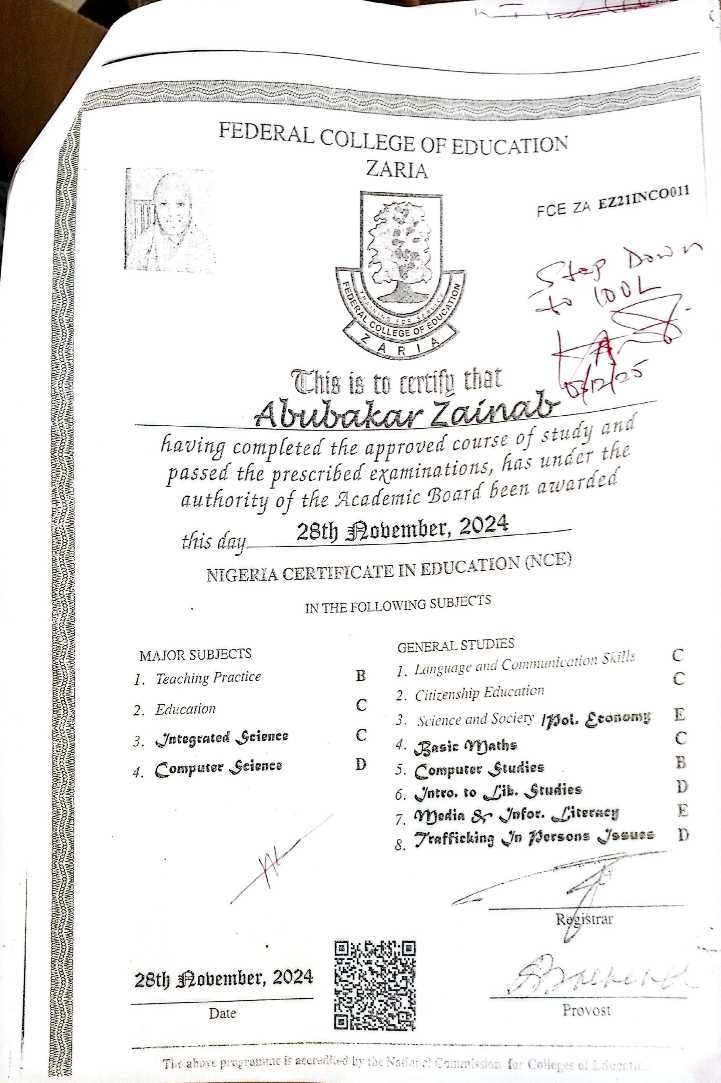 FEDERAL COLLEGE OF EDUCATION
ZARIA
FCE ZA EZ21INCO011
TRAINING FOR SERVICE
FEDERAL COLLEGE OF EDUCATION
ZARIA
Step Down
to 100L
03/12/25
This is to certify that
Abubakar Zainab
having completed the approved course of study and
passed the prescribed examinations, has under the
authority of the Academic Board been awarded
this day 28th November, 2024
NIGERIA CERTIFICATE IN EDUCATION (NCE)
IN THE FOLLOWING SUBJECTS
MAJOR SUBJECTS
1. Teaching Practice B
2. Education C
3. Integrated Science C
4. Computer Science D
GENERAL STUDIES
1. Language and Communication Skills C
2. Citizenship Education C
3. Science and Society /Pol. Economy E
4. Basic Maths C
5. Computer Studies B
6. Intro. to Lib. Studies D
7. Media & Infor. Literacy E
8. Trafficking In Persons Issues D
Registrar
28th November, 2024
Date
Provost
The above programme is accredited by the National Commission for Colleges of Education